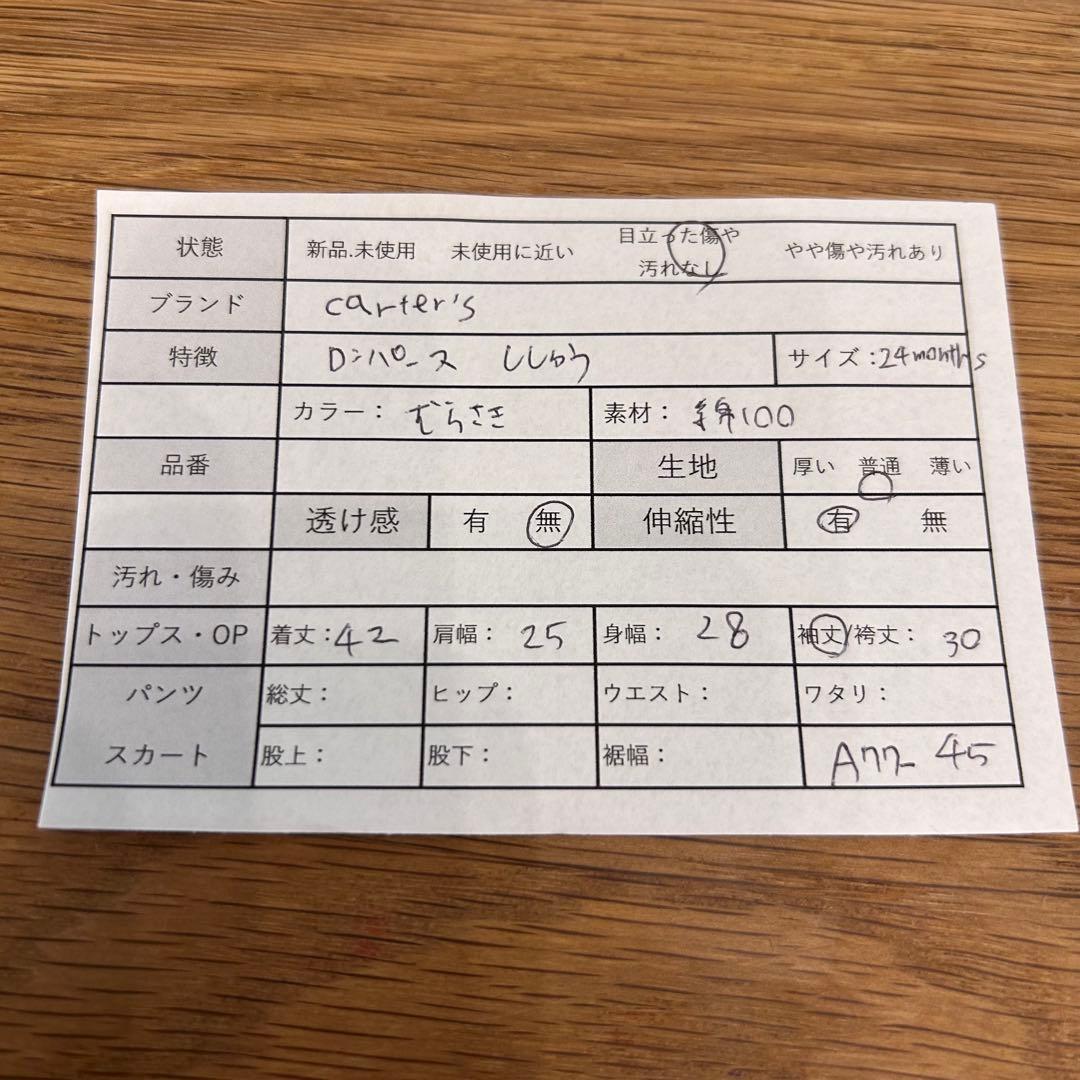 状態 新品.未使用 未使用に近い 目立った傷や汚れなし やや傷や汚れあり
ブランド carter's
特徴 ロンパース ししゅう サイズ:24months
カラー: むらさき 素材: 綿100
品番 生地 厚い 普通 薄い
透け感 有 無 伸縮性 有 無
汚れ・傷み
トップス・OP 着丈:42 肩幅: 25 身幅: 28 袖丈/裄丈: 30
パンツ 総丈: ヒップ: ウエスト: ワタリ:
スカート 股上: 股下: 裾幅: 45